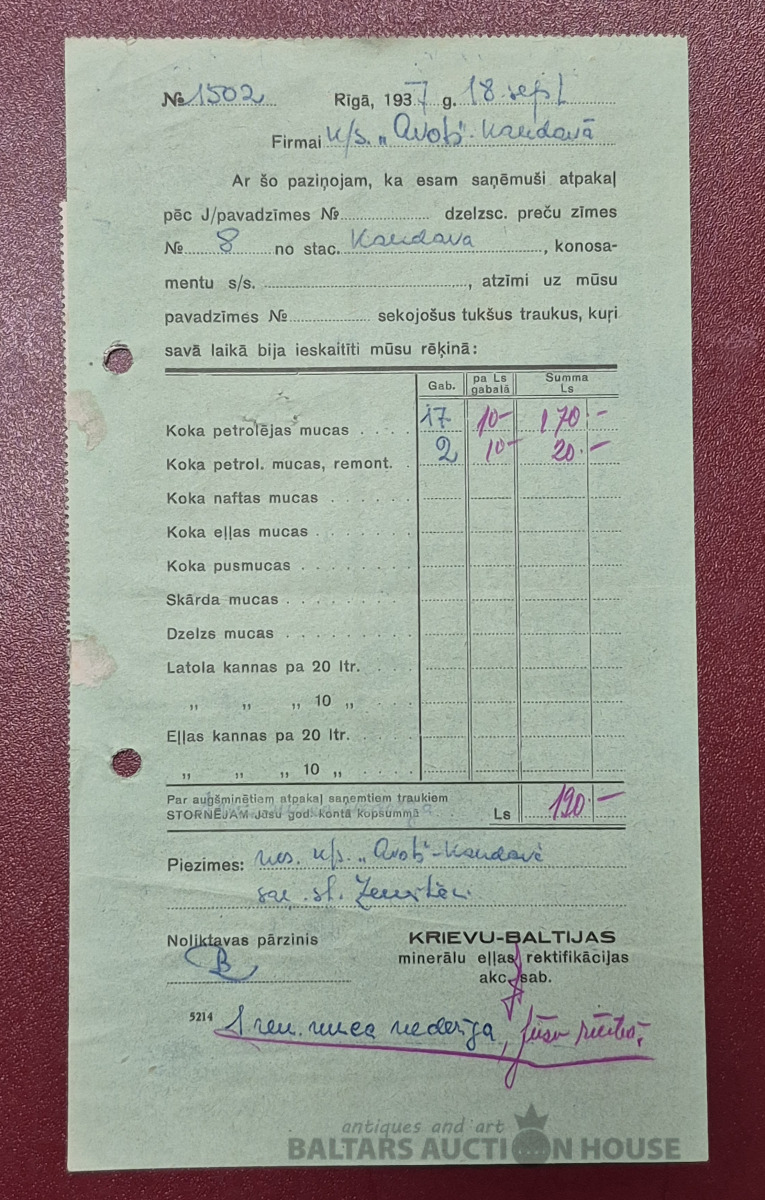 № 1502 Rīgā, 1937 g. 18 sept
Firmai k/s. „Avots" Kandavā
Ar šo paziņojam, ka esam saņēmuši atpakaļ
pēc J/pavadzīmes №.................... dzelzsc. preču zīmes
№ 8 no stac. Kandava, konosa-
mentu s/s. ...................., atzīmi uz mūsu
pavadzīmes №.................... sekojošus tukšus traukus, kuŗi
savā laikā bija ieskaitīti mūsu rēķinā:
Gab. pa Ls gabalā Summa Ls
Koka petrolējas mucas . . . . 17 10- 170.-
Koka petrol. mucas, remont. . 2 10- 20.-
Koka naftas mucas . . . . . .
Koka eļļas mucas . . . . . .
Koka pusmucas . . . . . . . .
Skārda mucas . . . . . . . .
Dzelzs mucas . . . . . . . .
Latola kannas pa 20 ltr. . . .
„ „ „ 10 „ . . . .
Eļļas kannas pa 20 ltr. . . .
„ „ „ 10 „ . . . .
Par augšminētiem atpakaļ saņemtiem traukiem
STORNĒJAM Jūsu god. kontā kopsummā Ls 190.-
Piezīmes: k/s. „Avots"-Kandavā
st.
Noliktavas pārzinis
B
KRIEVU-BALTIJAS
minerālu eļļas rektifikācijas
akc. sab.
5214
1 rem. muca nederīga, Jūsu rīcībā.
antiques and art
BALTARS AUCTION HOUSE